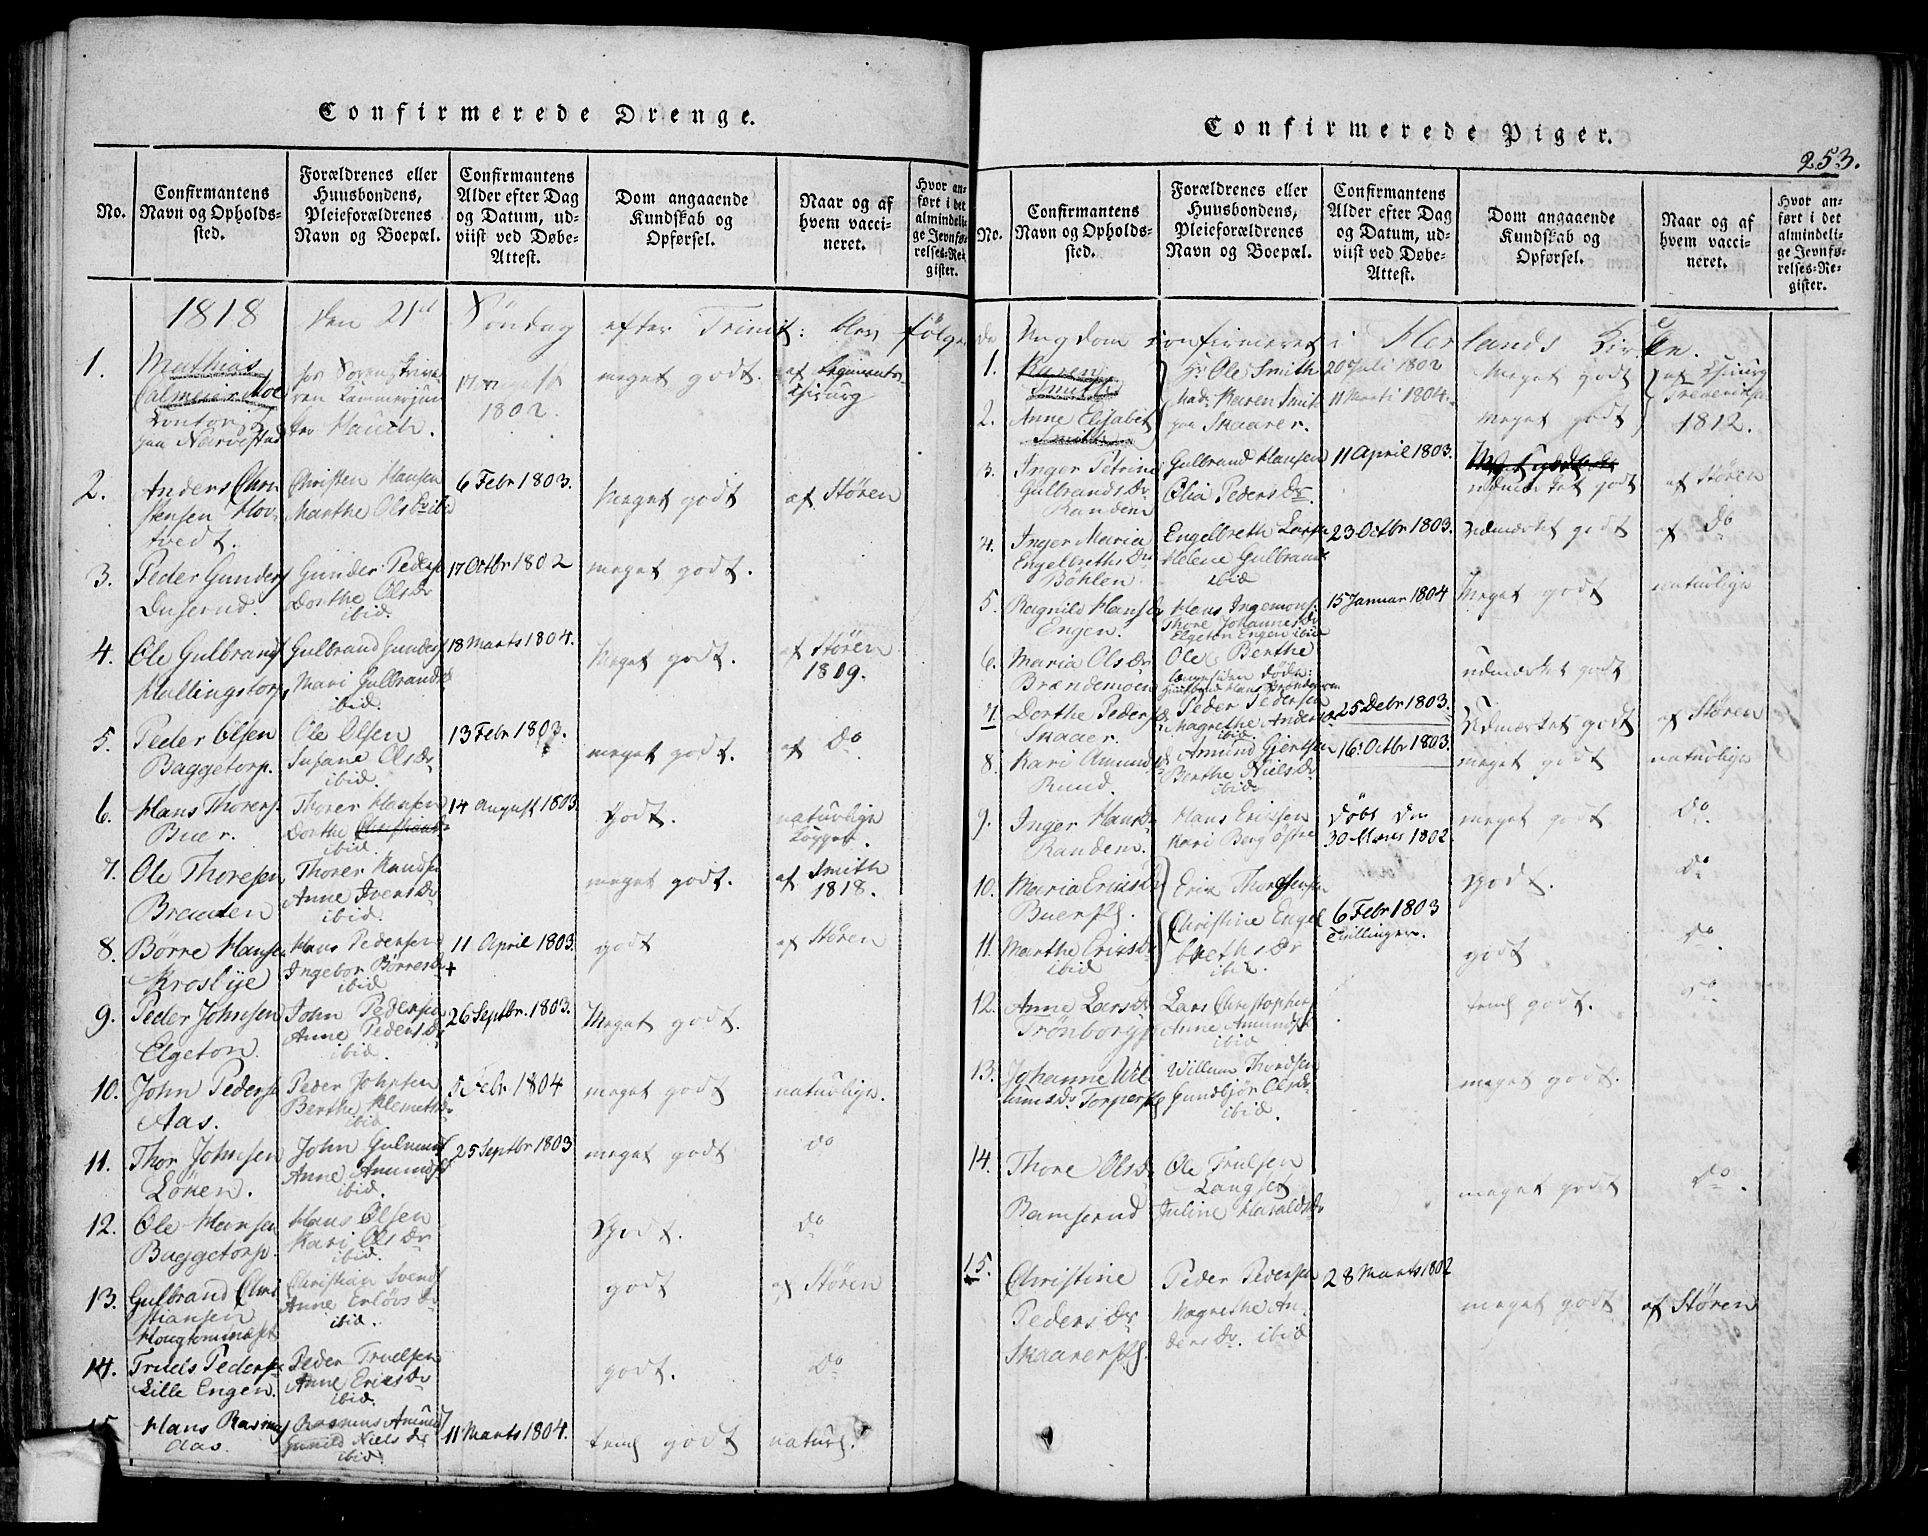 Confirmerede Drenge.
No.
Confirmantens
Navn og Opholds-
sted.
Forældrenes eller
Huusbondens,
Pleieforældrenes
Navn og Boepæl.
Confirmantens
Alder efter Dag
og Datum, ud-
viist ved Døbe-
Attest.
Dom angaaende
Kundskab og
Opførsel.
Naar og af
hvem vacci-
neret.
Hvor an-
ført i det
almindeli-
ge Jevnfø-
relses-Re-
gister.
1818 den 21de Söndag efter Trinit: blev følgen
1.
Mathias
Calmeier Moe
Contor
paa Narvestad
hos Sorenskrive
ren Kammerjun
ker Hauch.
1802.
meget godt.
af Regiments
Chirurg
2.
Anders Chri
stensen Hov-
tvedt.
Christen Hansen
Marthe Olsdr ibid
6 Febr 1803.
Meget godt
af Stören
3.
Peder Gunders
Duserud.
Gunder Peders
Dorthe Olsdr
ibid.
17 Octbr 1802
meget godt.
4.
Ole Gulbrands
Hallingstorp
Gulbrand Gunders
Mari Gulbrandsdr
ibid.
18 Marts 1804.
Meget godt.
af Stören
1809.
5.
Peder Olsen
Baggetorp.
Ole Olsen
Susane Olsdr
ibid
13 Febr 1803.
meget godt.
af Do
6.
Hans Thorers
Buer.
Thorer Hansen
Dorthe Christiansdr
ibid
14 August 1803.
Godt.
naturlige
Kopper.
7.
Ole Thoresen
Brauten
Thorer Knudsen
Anne Iversdr
ibid.
meget godt.
af Smith
1818.
8.
Börre Hansen
Krosbye
Hans Pedersen
Ingebor Börresdr
ibid
11 April 1803.
+
godt
af Stören
9.
Peder Johnsen
Elgeton.
John Pedersen
Anne Pedersdr
ibid.
26 Septbr. 1803.
Meget godt.
10.
John Pedersen
Aas.
Peder Johnsen
Berthe Klemetsdr
ibid.
5 Febr 1804
meget godt
naturlige.
11.
Thor Johnsen
Löken.
John Gulmunds
Anne Amunds
ibid.
25 Septbr 1803
meget godt
do
12.
Ole Hansen
Baggetorp.
Hans Olsen
Kari Olsdr
ibid.
Godt.
do
13.
Gulbrand Chri
stiansen
Christian Svends
Anne Erlövsdr
ibid.
godt
af Stören
14.
Truels Pederse
Lille Engen.
Peder Truelsen
Anne Eriksdr
ibid
godt.
Do
15.
Hans Rasmus
Aas.
Rasmus Amunds
Gunild Nielsdr
ibid.
11 Marts 1804.
teml godt
naturl.
Confirmerede Piger.
253.
No.
Confirmantens
Navn og Opholds-
sted.
Forældrenes eller
Huusbondens,
Pleieforældrenes
Navn og Boepæl.
Confirmantens
Alder efter Dag
og Datum, ud-
viist ved Døbe-
Attest.
Dom angaaende
Kundskab og
Opførsel.
Naar og af
hvem vacci-
neret.
Hvor an-
ført i det
almindeli-
ge Jevnfø-
relses-Re-
gister.
de Ungdom confirmeret i Herlands Kirke.
1.
Karen
Smith
Hr Ole Smith
20 Juli 1802
Meget godt
af Chirurg
2.
Anne Elisabet
Smith
Mad: Karen Smit
paa Skaarer.
11 Marti 1804.
meget godt
Frederiksen
1812.
3.
Inger Petrine
Gulbrandsdr
Randem
Gulbrand Hansen
Olia Pedersdr.
11 April 1803.
udmærket godt
af Stören
4.
Inger Maria
Engelbrethsdr
Böhlen
Engelbreth Larsen
Helene Gulbrands
ibid
23 Octbr 1803.
Udmærket godt
af Do
5.
Ragnild Hansdr
Engen.
Hans Ingemons.
Thore Johannesdr
Elgeton Engen ibid
15 Januar 1804
Meget godt
naturlige
6.
Maria Olsdr
Brændemoen
Ole & Berthe
længesiden døde:
udmærket godt
7.
Dorthe Pedersdr
Skaaer.
Peder Pedersen
Magrethe Anders
ibid.
25 Debr 1803.
Udmærket godt
af Stören
8.
Kari Amunds
Rund.
Amund Gjertsen
Berthe Nielsdr
ibid
16 Octbr 1803.
meget godt
naturlige
9.
Inger Hansdr
Randem.
Hans Eriksen
Kari Berg Östre
döbt den
30 Mars 1802.
meget godt
do
10.
Maria Eriksdr
Buerspl.
Erik Thoresen
Godt.
do
11.
Marthe Eriksdr
ibid
Christine Engel
brethsdr
ibid.
6 Febr 1803
Tvillinger.
godt
do
12.
Anne Larsdr
Trönborg
Lars Christophers
Anne Amunds
ibid
teml godt.
do
13.
Johanne Wil
lumsdr. Torperspl
Willum Thordsen
Gundbjör Olsdr
ibid.
meget godt.
14.
Thore Olsdr
Bamserud
Ole Trulsen
Langset
Juline Haraldsdr
meget godt
do
15.
Christine
Pedersdr
Skaarerspl.
Peder Pedersen
Magrethe An-
dersdr. ibid
28 Marts 1802
meget godt
af Stören